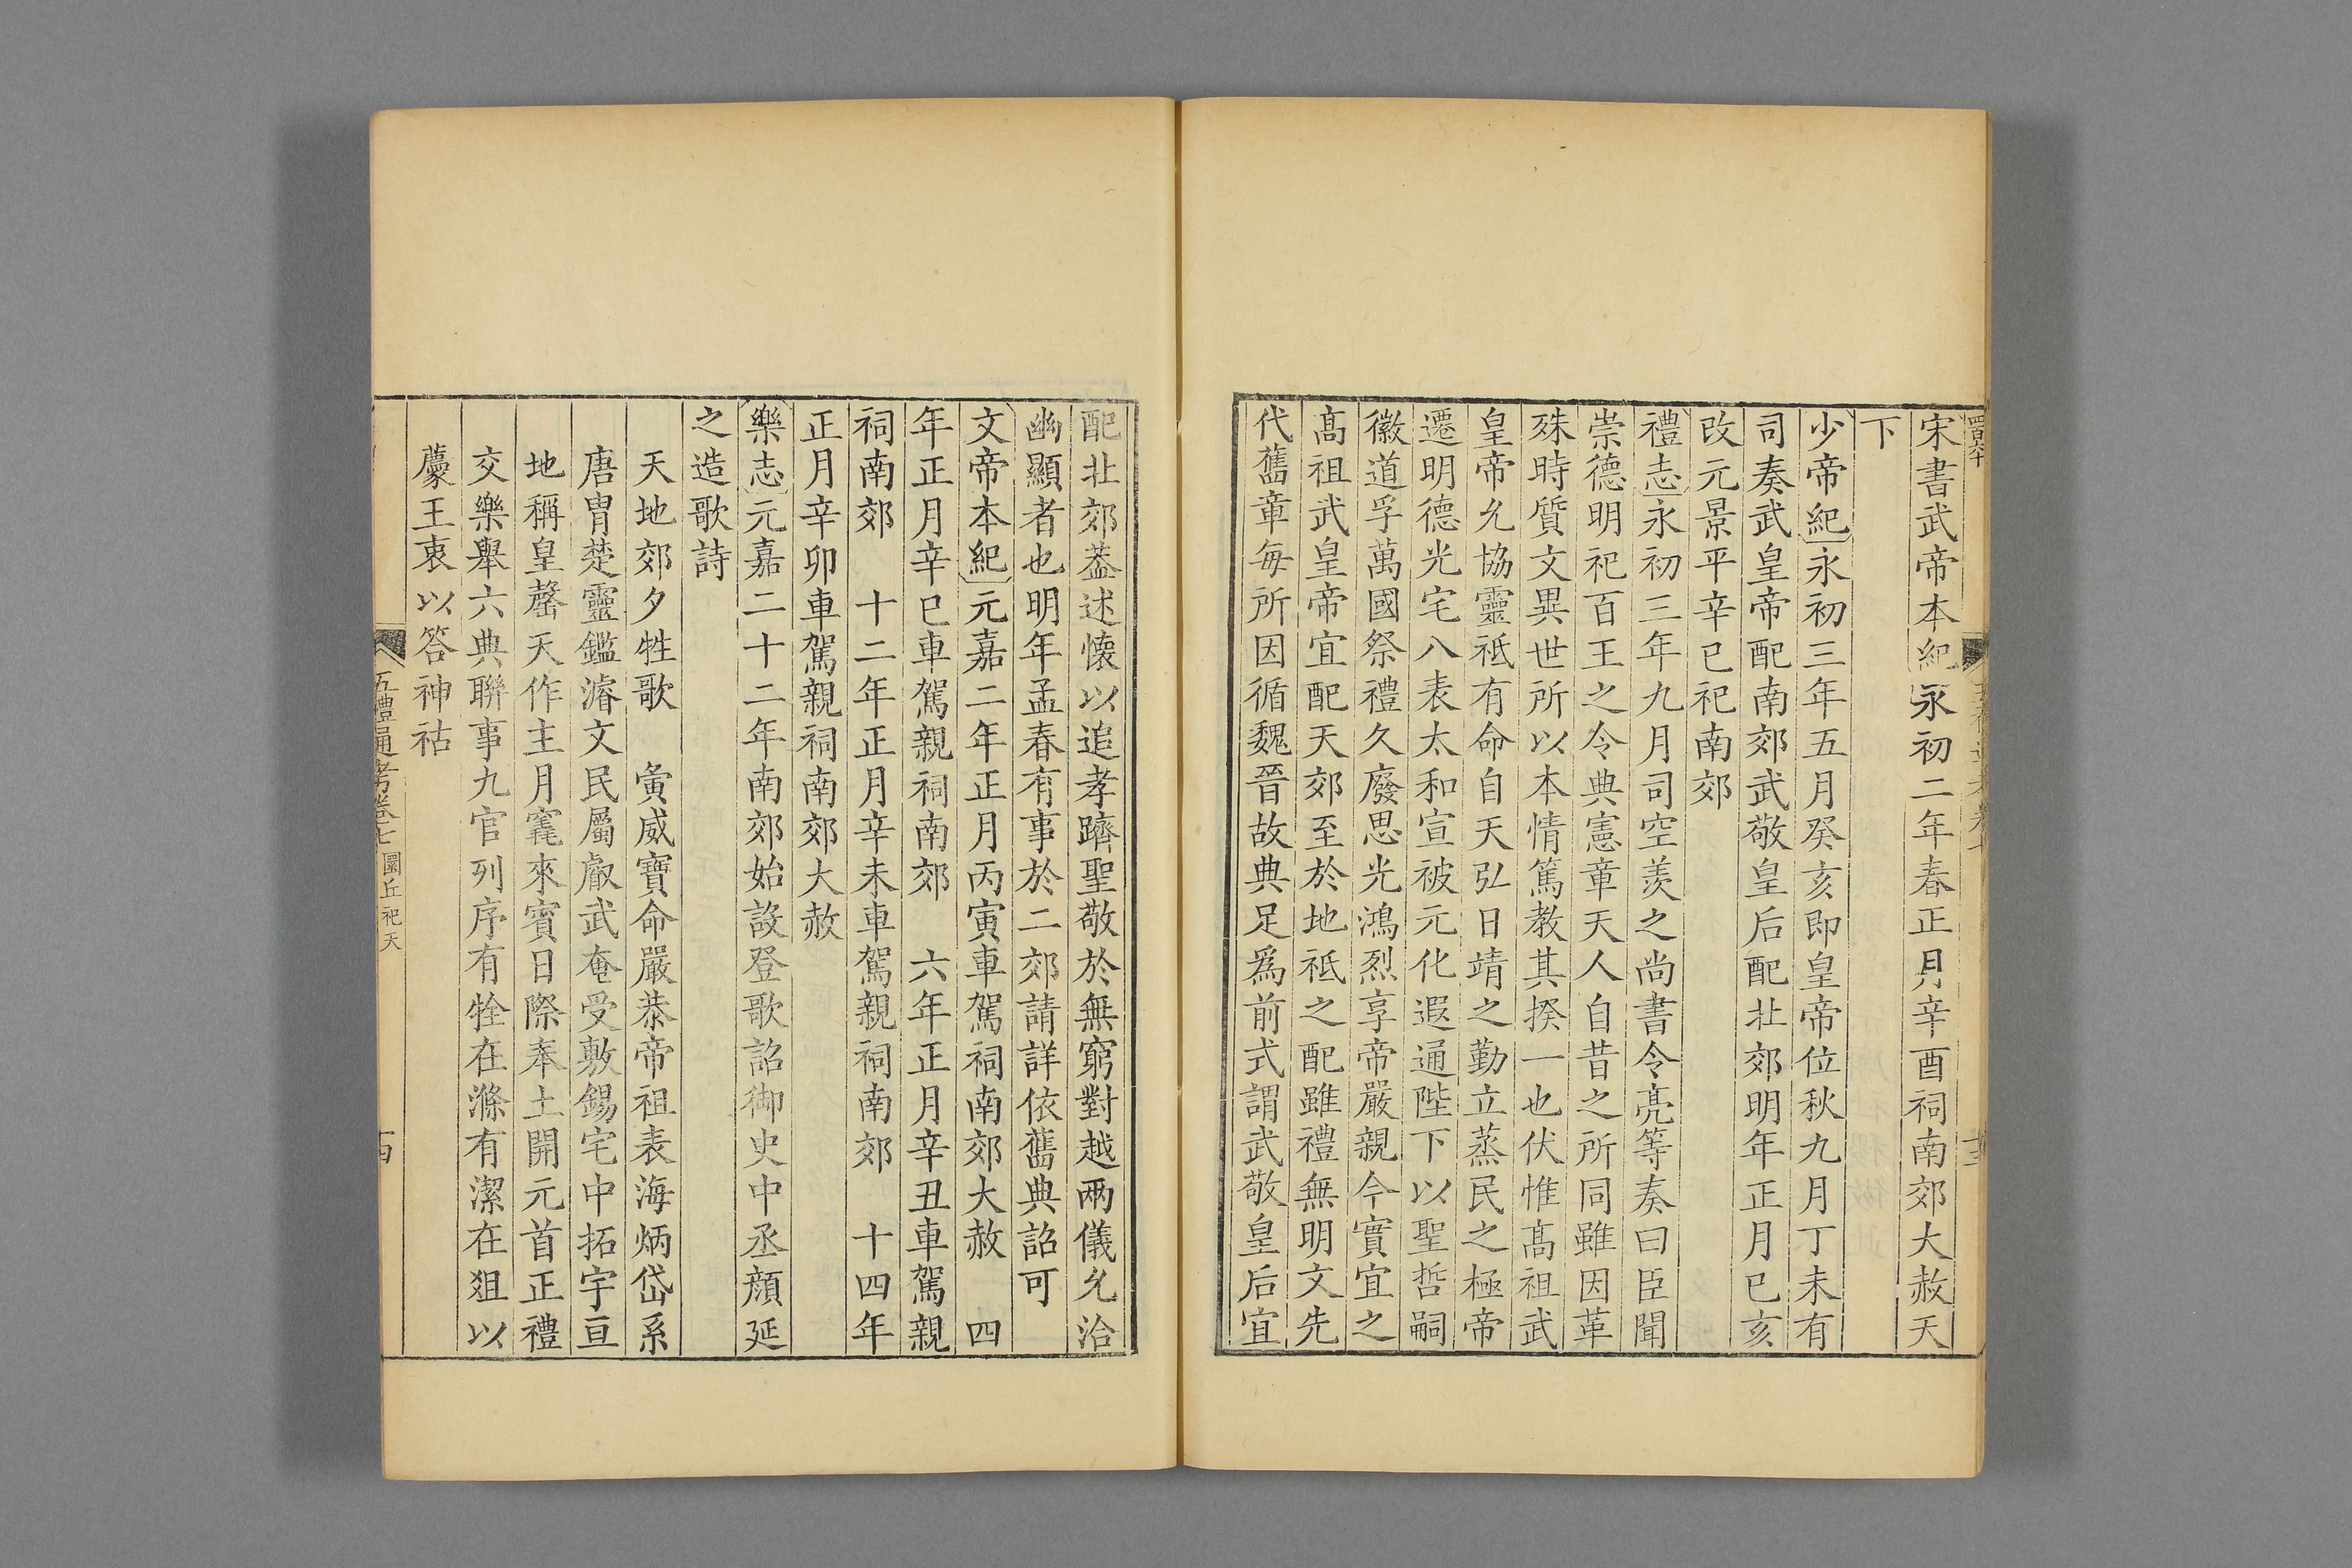 宋書武帝本紀永初二年春正月辛酉祠南郊大赦天
下
少帝紀永初三年五月癸亥即皇帝位秋九月丁未有
司奏武皇帝配南郊武敬皇后配北郊明年正月巳亥
改元景平辛巳祀南郊
禮志永初三年九月司空羨之尚書令亮等奏曰臣聞
崇德明祀百王之令典憲章天人自昔之所同雖因革
殊時質文異世所以本情篤教其揆一也伏惟髙祖武
皇帝允協靈祗有命自天弘日靖之勤立蒸民之極帝
遷明德光宅八表太和宣被元化遐通陛下以聖哲嗣
徽道孚萬國祭禮久廢思光鴻烈享帝嚴親今實宜之
髙祖武皇帝宜配天郊至於地祗之配雖禮無明文先
代舊章每所因循魏晉故典足爲前式謂武敬皇后宜
配北郊葢述懷以追孝躋聖敬於無窮對越兩儀允洽
幽顯者也明年孟春有事於二郊請詳依舊典詔可
文帝本紀元嘉二年正月丙寅車駕祠南郊大赦 四
年正月辛巳車駕親祠南郊 六年正月辛丑車駕親
祠南郊 十二年正月辛未車駕親祠南郊 十四年
正月辛卯車駕親祠南郊大赦
樂志元嘉二十二年南郊始設登歌詔御史中丞顔延
之造歌詩
天地郊夕牲歌 寅威寶命嚴恭帝祖表海炳岱系
唐胄楚靈鑑濬文民屬叡武奄受敷錫宅中拓宇亘
地稱皇罄天作主月竁來賓日際奉土開元首正禮
交樂舉六典聯事九官列序有牷在滌有潔在俎以
薦王衷以答神祜
五禮通考卷七 圜丘祀天